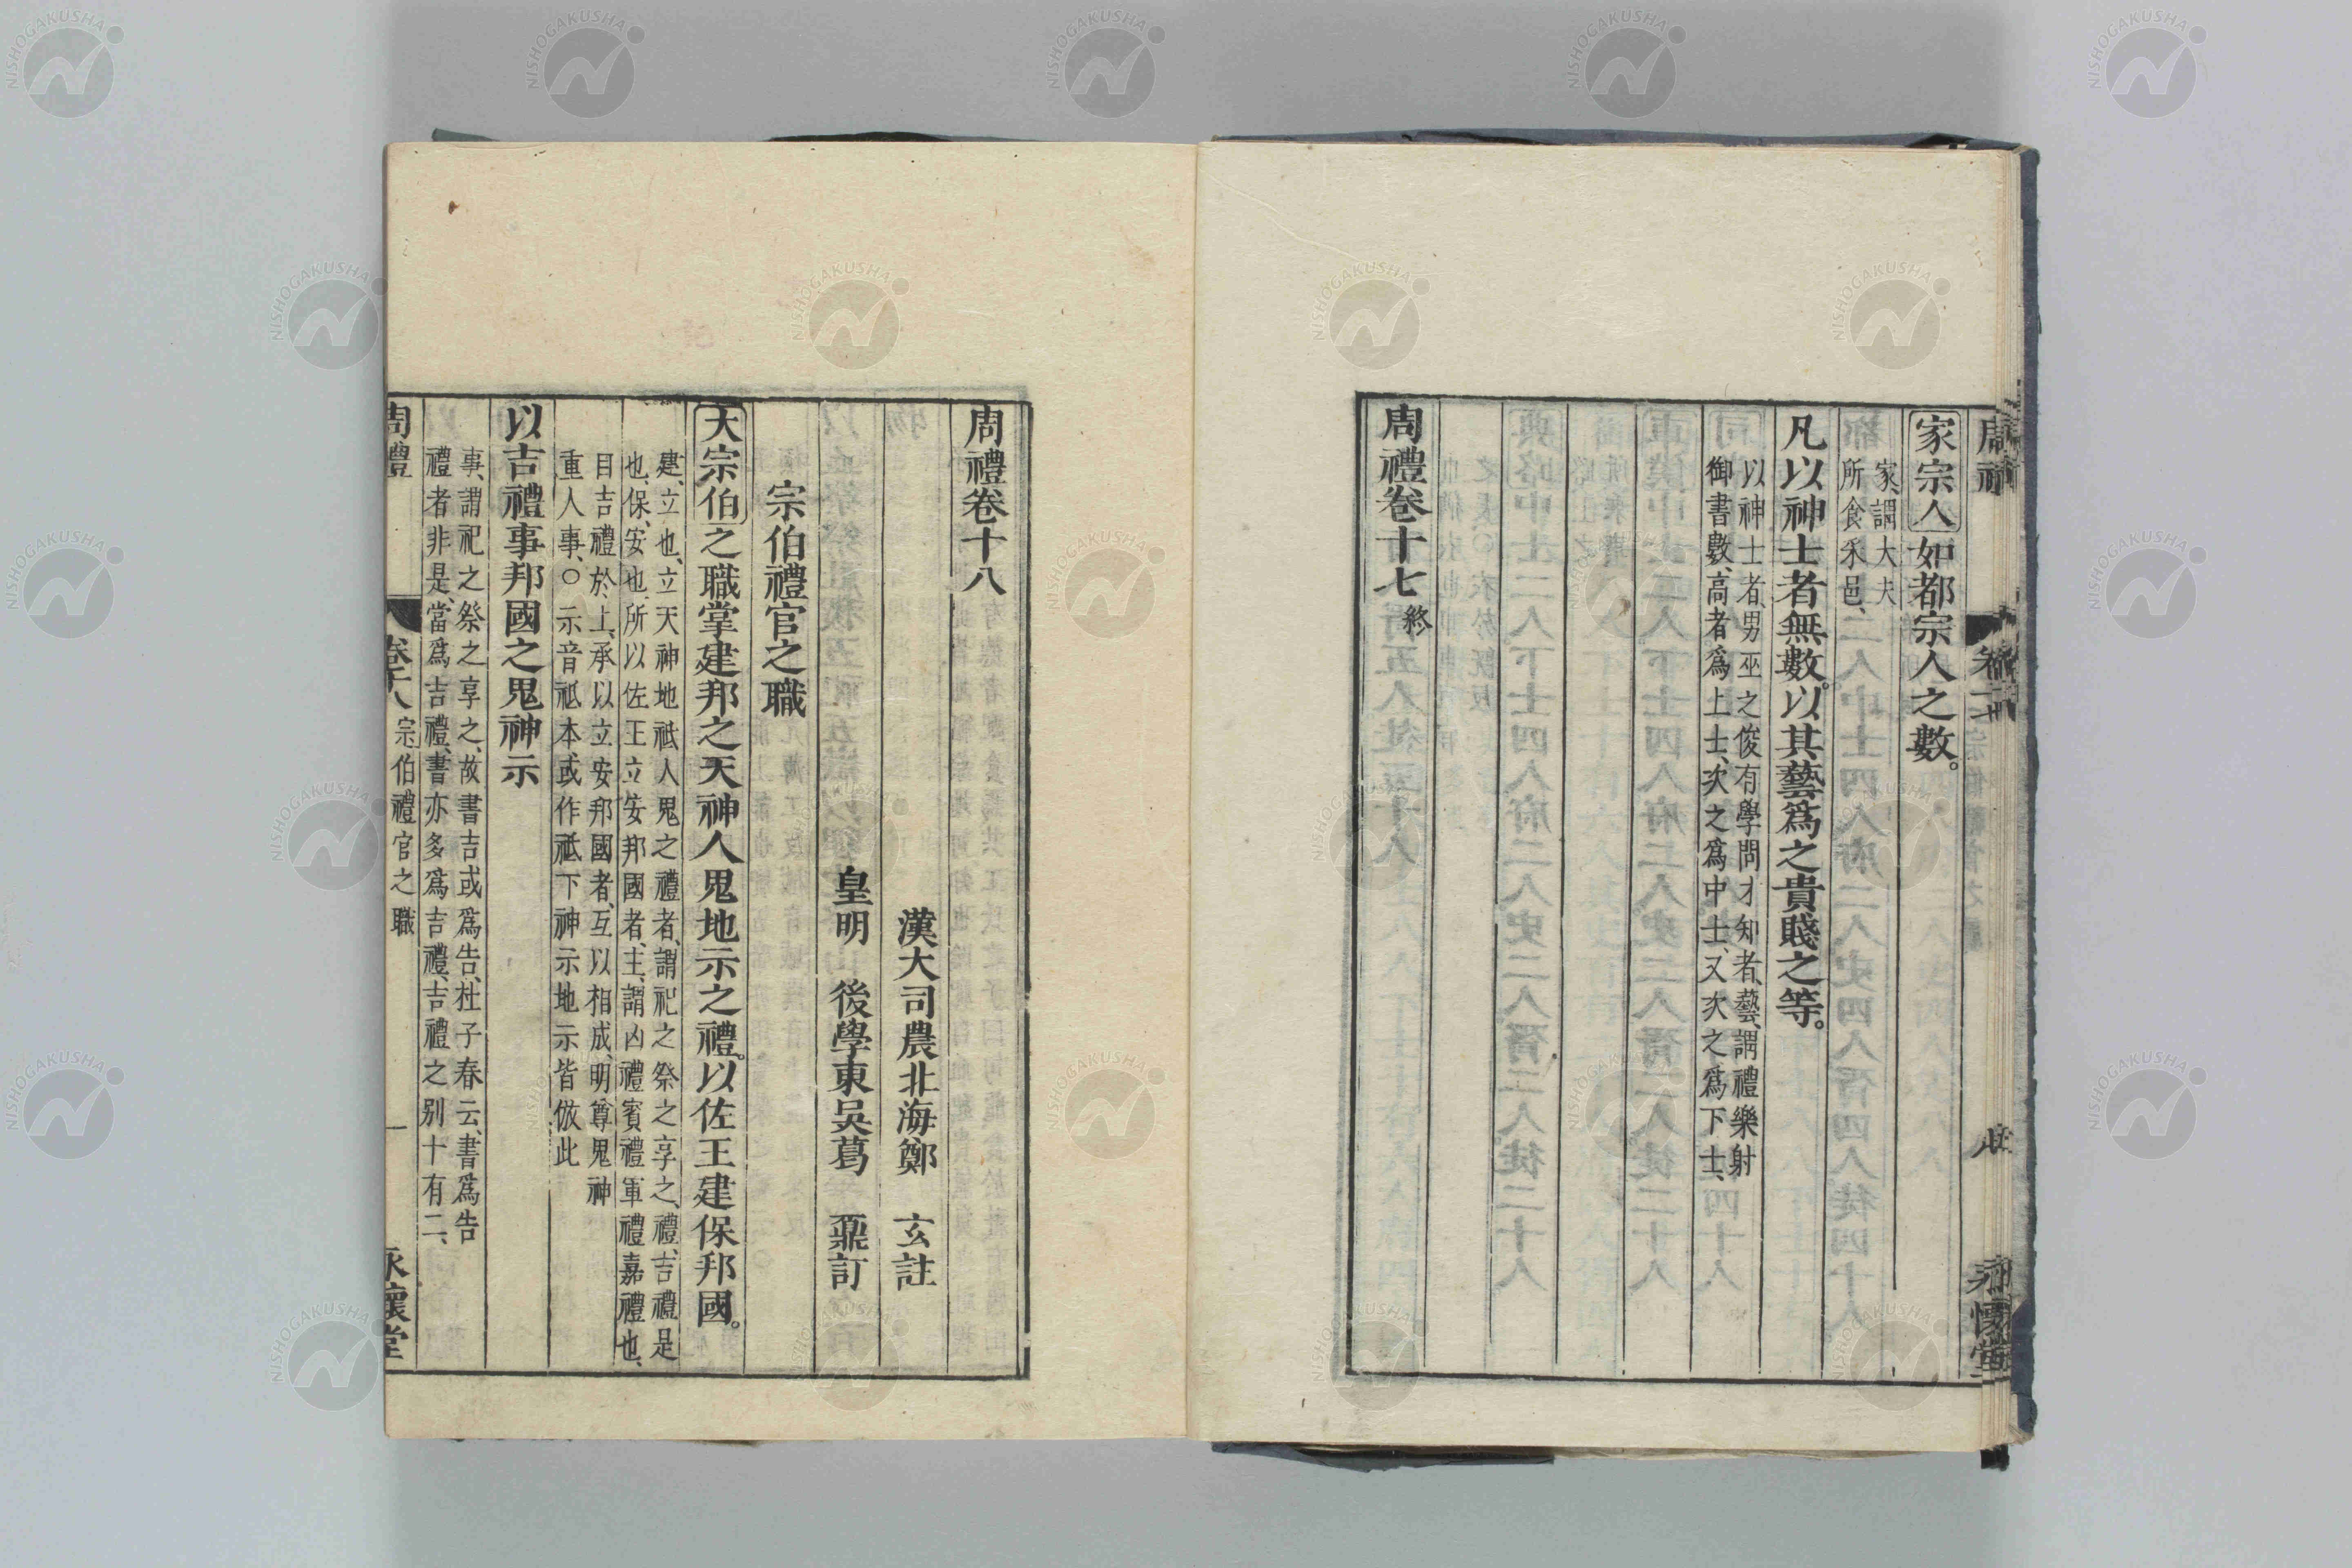 家宗人如都宗人之數。
家、謂大夫
所食采邑、
凡以神士者無數。以其藝爲之貴賤之等。
以神士者、男巫之俊有學問才知者、藝、謂禮樂射
御書數、高者爲上士、次之爲中士、又次之爲下士、
周禮卷十七 終
周禮卷十八
漢大司農北海鄭 玄註
皇明 後學東吳葛 鼐訂
宗伯禮官之職
大宗伯之職掌建邦之天神人鬼地示之禮。以佐王建保邦國。
建、立也、立天神地祗人鬼之禮者、謂祀之祭之享之、禮、吉禮是
也、保、安也、所以佐王立安邦國者、主、謂凶禮賓禮軍禮嘉禮也、
目吉禮於上、承以立安邦國者、互以相成、明、尊鬼神
重人事、○示音祗本或作祗下神示地示皆倣此
以吉禮事邦國之鬼神示
事、謂祀之祭之享之、故書吉或爲告、杜子春云、書爲告
禮者非是、當爲吉禮、書亦多爲吉禮、吉禮之別十有二、
周禮 卷十八 宗伯禮官之職 一 永懷堂
NISHOGAKUSHA